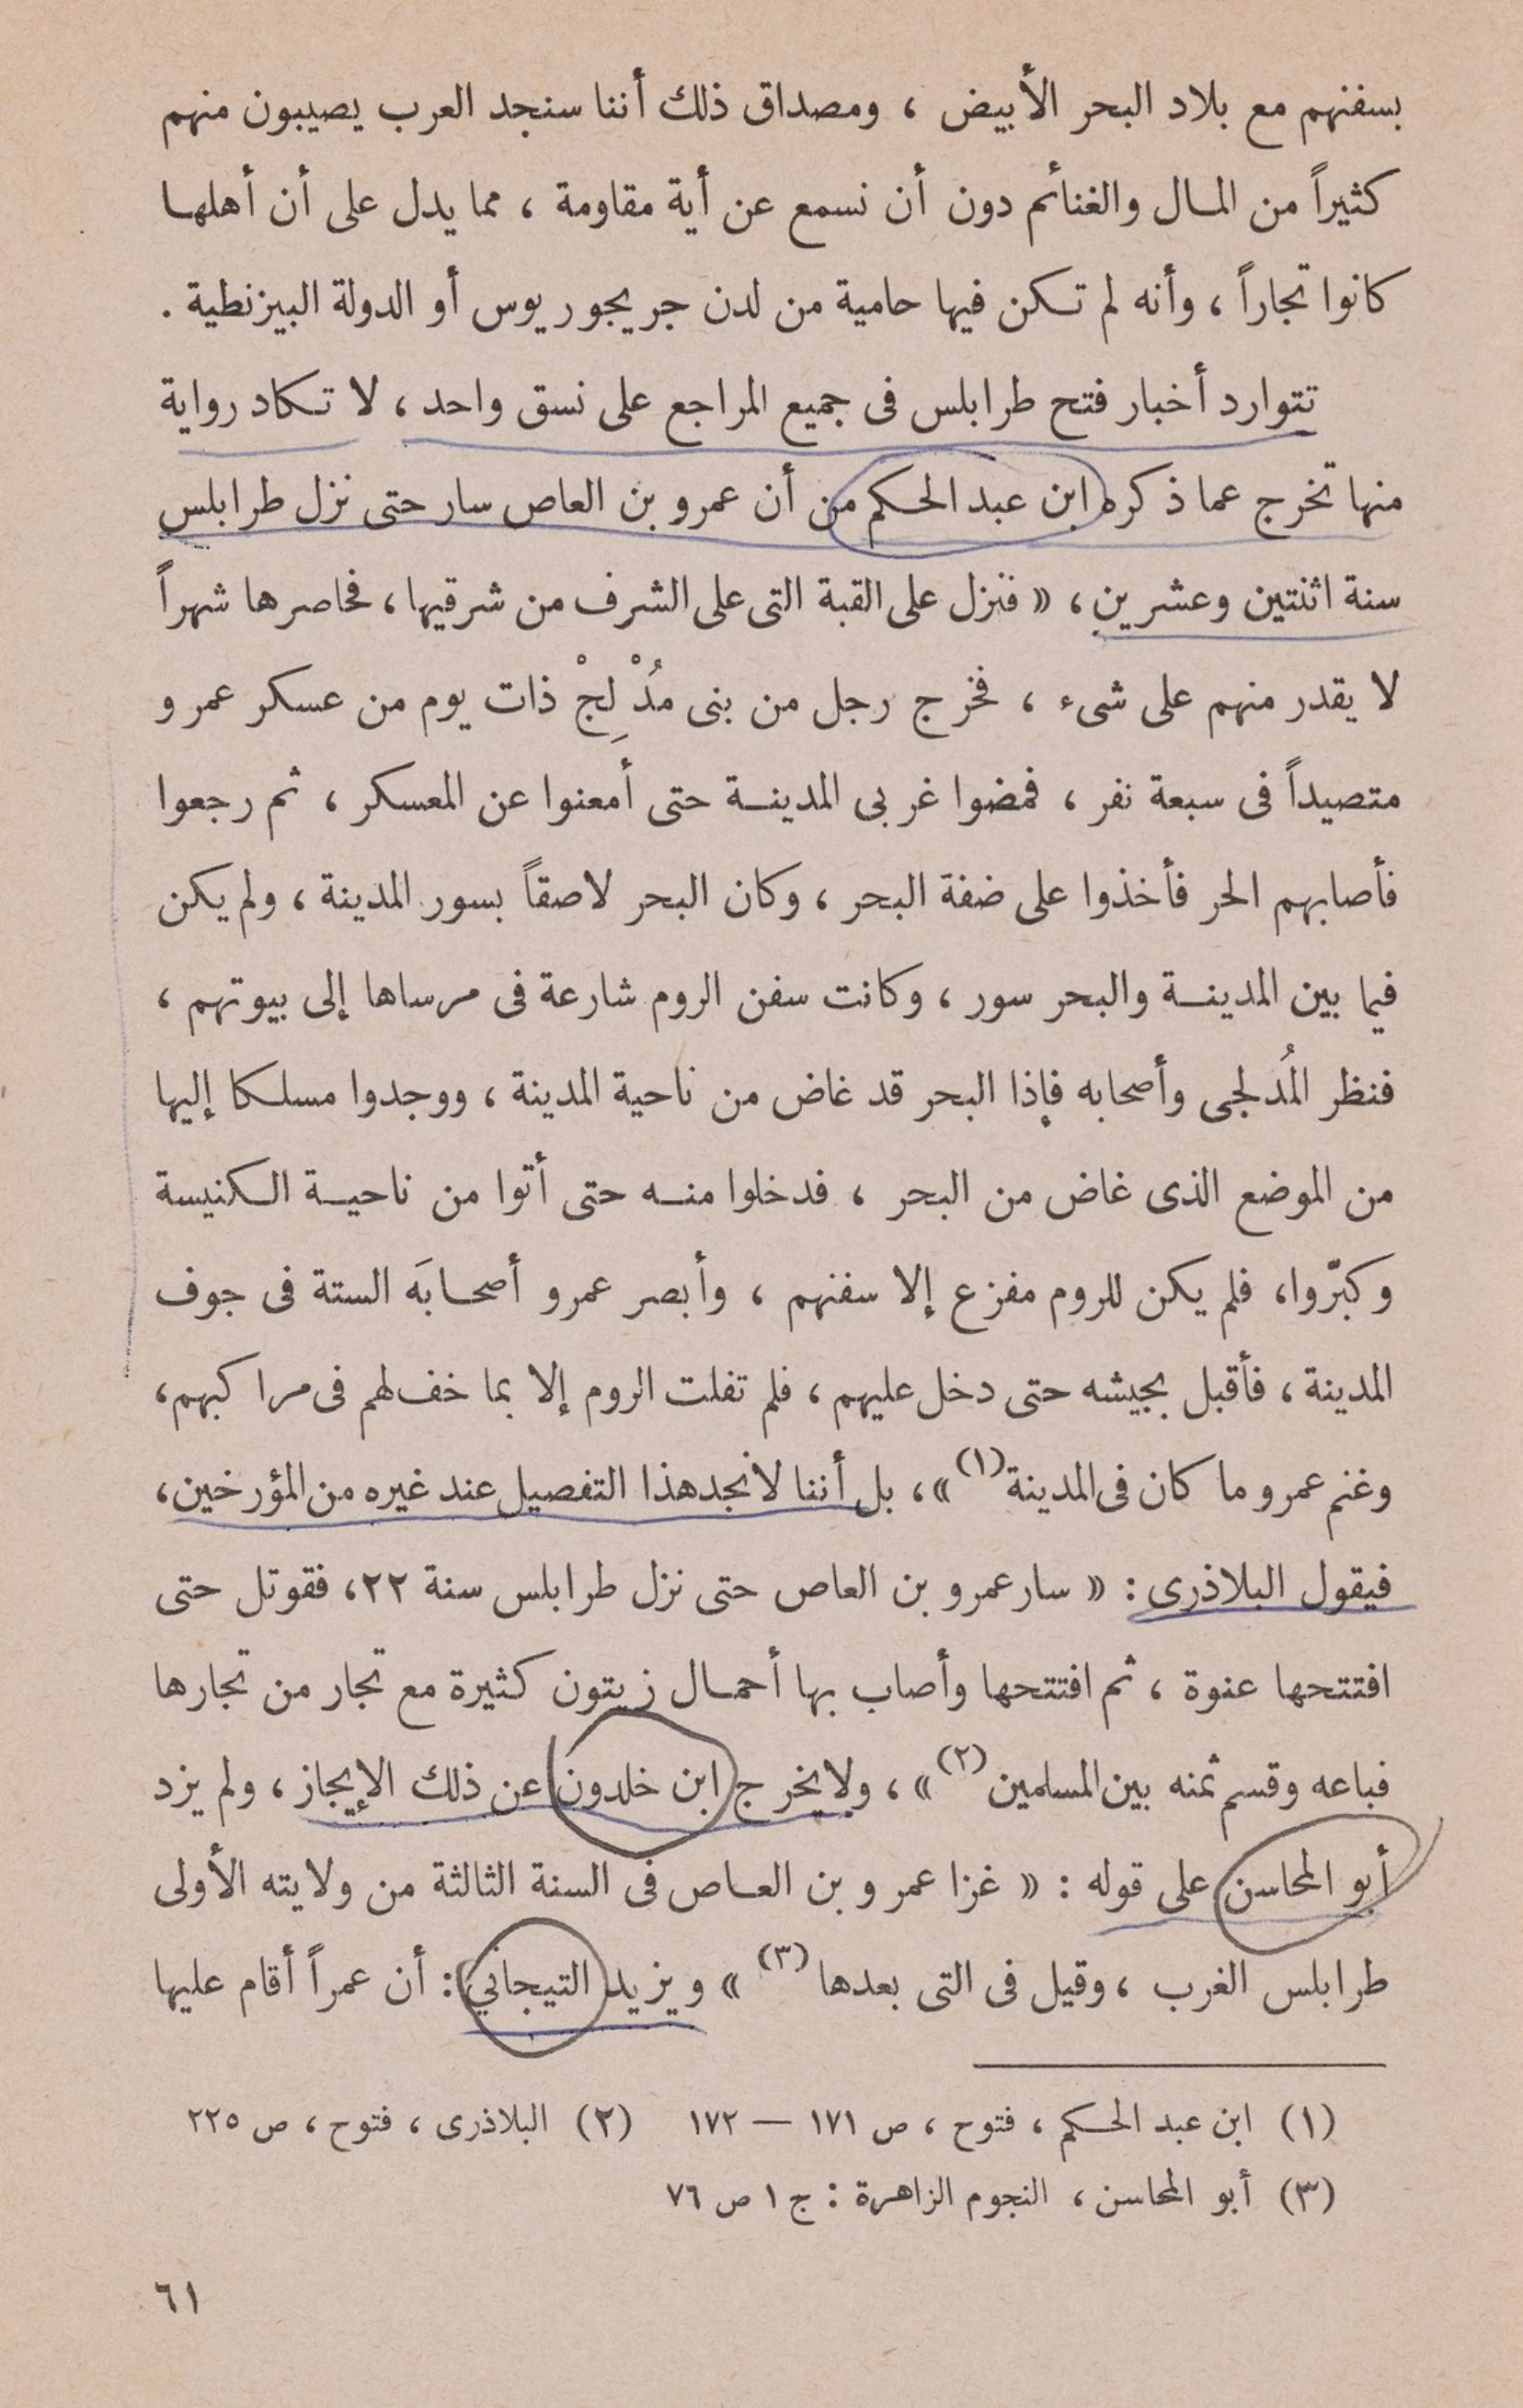 بسفنهم مع بلاد البحر الأبيض ، ومصداق ذلك أننا سنجد العرب يصيبون منهم
كثيراً من المال والغنائم دون أن نسمع عن أية مقاومة ، مما يدل على أن أهلها
كانوا تجاراً ، وأنه لم تكن فيها حامية من لدن جريجوريوس أو الدولة البيزنطية .
تتوارد أخبار فتح طرابلس فى جميع المراجع على نسق واحد ، لا تكاد رواية
منها تخرج عما ذكره ابن عبد الحكم من أن عمرو بن العاص سار حتى نزل طرابلس
سنة اثنتين وعشرين ، « فنزل على القبة التى على الشرف من شرقيها ، فحاصرها شهراً
لا يقدر منهم على شىء ، فخرج رجل من بنى مُدْلِجْ ذات يوم من عسكر عمرو
متصيداً فى سبعة نفر ، فمضوا غربى المدينة حتى أمعنوا عن المعسكر ، ثم رجعوا
فأصابهم الحر فأخذوا على ضفة البحر ، وكان البحر لاصقاً بسور المدينة ، ولم يكن
فيما بين المدينة والبحر سور ، وكانت سفن الروم شارعة فى مرساها إلى بيوتهم ،
فنظر المُدلجى وأصحابه فإذا البحر قد غاض من ناحية المدينة ، ووجدوا مسلكا إليها
من الموضع الذى غاض من البحر ، فدخلوا منه حتى أتوا من ناحية الكنيسة
وكبّروا، فلم يكن للروم مفزع إلا سفنهم ، وأبصر عمرو أصحابَه الستة فى جوف
المدينة ، فأقبل بجيشه حتى دخل عليهم ، فلم تفلت الروم إلا بما خف لهم فى مراكبهم،
وغنم عمرو ما كان فى المدينة (١) » ، بل أننا لا نجد هذا التفصيل عند غيره من المؤرخين،
فيقول البلاذرى : « سار عمرو بن العاص حتى نزل طرابلس سنة ٢٢، فقوتل حتى
افتتحها عنوة ، ثم افتتحها وأصاب بها أحمال زيتون كثيرة مع تجار من تجارها
فباعه وقسم ثمنه بين المسلمين (٢) » ، ولا يخرج ابن خلدون عن ذلك الإيجاز ، ولم يزد
أبو المحاسن على قوله : « غزا عمرو بن العاص فى السنة الثالثة من ولايته الأولى
طرابلس الغرب ، وقيل فى التى بعدها (٣) » ويزيد التيجاني : أن عمراً أقام عليها
(١) ابن عبد الحكم ، فتوح ، ص ١٧١ — ١٧٢ (٢) البلاذرى ، فتوح ، ص ٢٢٥
(٣) أبو المحاسن ، النجوم الزاهرة : ج ١ ص ٧٦
٦١